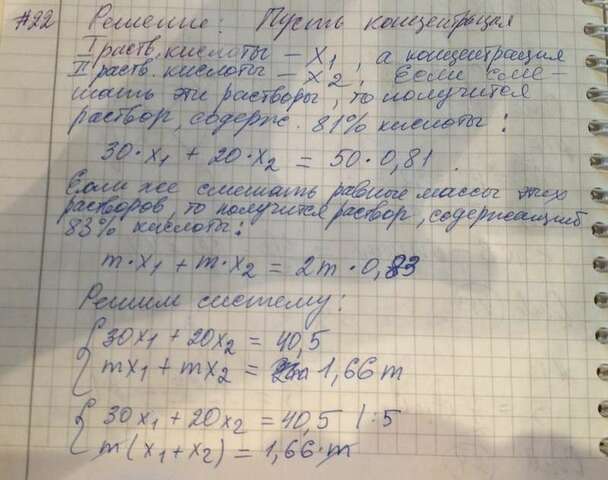 #22 Решение: Пусть концентрация
I раств. кислоты – x₁, а концентрация
II раств. кислоты – x₂. Если сме-
шать эти растворы, то получится
раствор, содерж. 81% кислоты:
30·x₁ + 20·x₂ = 50·0,81.
Если же смешать равные массы этих
растворов, то получится раствор, содержащий
83% кислоты:
m·x₁ + m·x₂ = 2m·0,83
Решим систему:
{ 30x₁ + 20x₂ = 40,5
mx₁ + mx₂ = 1,66m
{ 30x₁ + 20x₂ = 40,5 /:5
m(x₁ + x₂) = 1,66·m